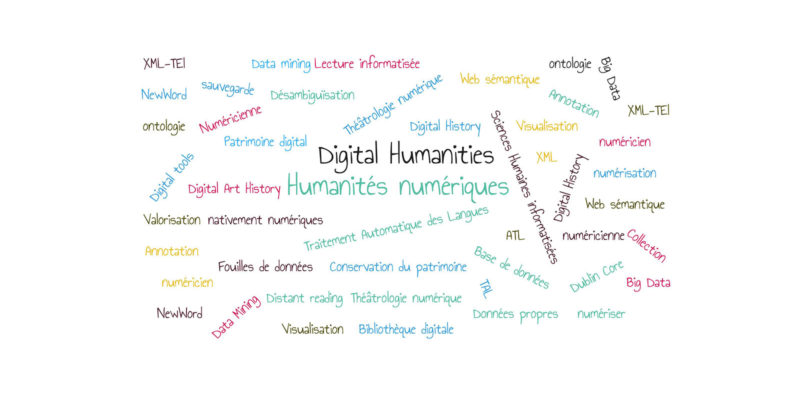 XML-TEI
Data mining
Lecture informatisée
ontologie
Big Data
NewWord
sauvegarde
Désambiguïsation
Théâtrologie numérique
Web sémantique
Annotation
XML-TEI
ontologie
Numéricienne
Patrimoine digital
Digital History
Sciences Humaines informatisées
Visualisation
numéricien
Digital tools
Digital Humanities
XML
Digital History
numérisation
Digital Art History
Humanités numériques
Web sémantique
Valorisation
nativement numériques
Traitement Automatique des Langues
ATL
numéricienne
Collection
Annotation
Fouilles de données
Conservation du patrimoine
Base de données
Dublin Core
Big Data
numéricien
Data Mining
Distant reading
Théâtrologie numérique
TAL
NewWord
Visualisation
Bibliothèque digitale
Données propres
numériser